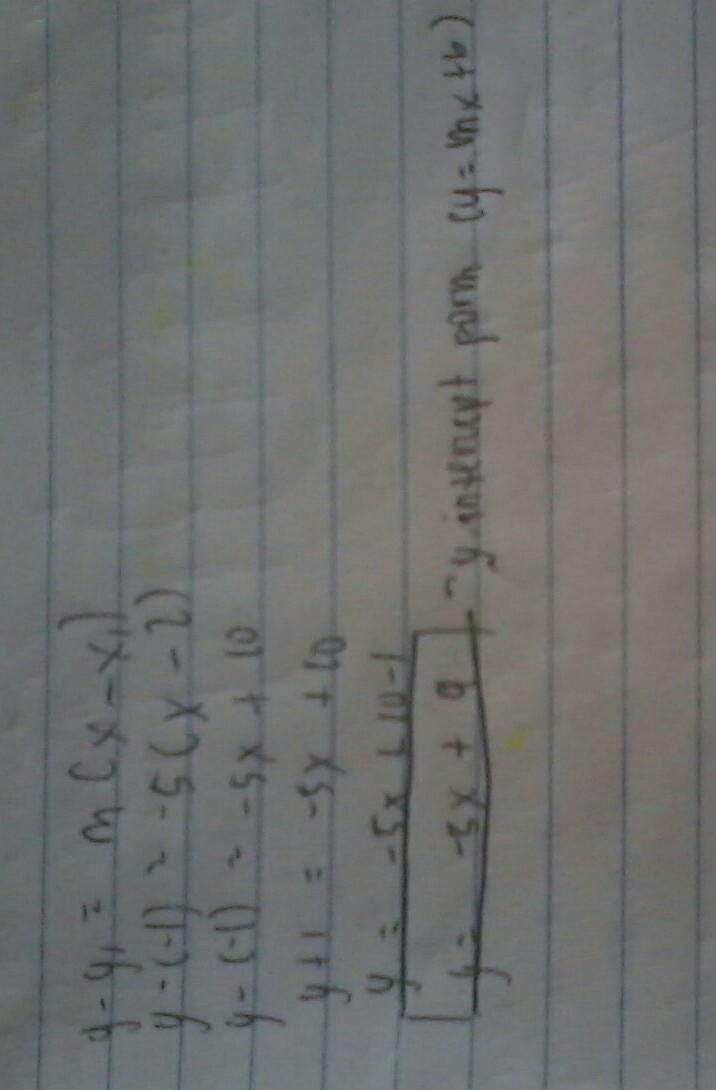 y - y₁ = m(x - x₁)
y - (-1) = -5(x - 2)
y - (-1) = -5x + 10
y + 1 = -5x + 10
y = -5x + 10 - 1
y = -5x + 9 - y intercept form (y = mx + b)